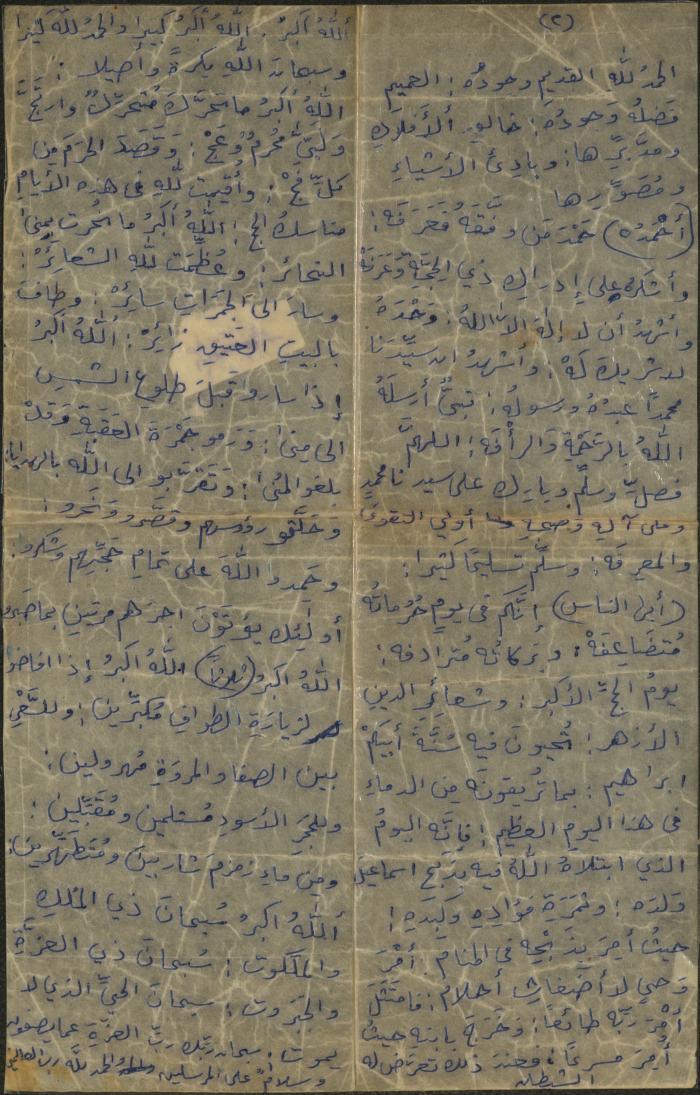 (٢)
الحمدُ للّٰهِ القديمِ وجودُهُ؛ العميمِ
فَضلُهُ وَجودُهُ؛ خالقِ الأفلاكِ
ومدَبِّرِها؛ وبارئ الأشياءِ
ومُصَوِّرِها
(أحمدُه) حَمْدَ مَن وفَّقَهُ فَعَرَفَه؛
وأشكرُه على إدراكِ ذي الحِجّةِ وعَرَفَة
وأشهدُ أن لا إلهَ الا اللّٰهُ؛ وَحْدَهُ
لا شريكَ لَهْ؛ وأشهدُ ان سيِّدَنا
محمداً عبدُهُ ورسولُه؛ نبيٌّ أرسلَهُ
اللّٰهُ بالرَّحْمةِ والرأْفَه؛ اللهمَّ
فصلِّ وسلِّم وبارك على سيدنا محمدٍ
وعلى آلهِ وصحبهِ أولي التقوى
والمعرِفَه؛ وسلِّم تسليمًا كثيرا؛
(أيها الناس) إنَّكم في يومٍ حُرُماتُه
مُتضَاعِفَهْ؛ وبَرَكاتُه مُترادفه؛
يومُ الحجِّ الأكبر؛ وشعائرُ الدينِ
الأزهر؛ تُحيونَ فيه سُنَّةَ أبيكُمْ
ابراهيم؛ بما تُريقونَه مِن الدماءِ
في هذا اليومِ العظيمِ؛ فإنَّه اليومُ
الذي ابتلاهُ اللّٰهُ فيه بذَبْحِ اسماعيلَ
وَلَدِه؛ وثَمَرَةِ فؤادِهِ وكَبِدِهِ؛
حيثُ أُمِرَ بذَبْحِهِ في المنام. أمْرَ
وَحيٍ لا أضْغاثِ أحلام؛ فامتَثَلَ
أمْرَ رَبِّه طائعًا؛ وَخَرَجَ بابنِه حيثُ
أُمِرَ مسرعًا؛ فعندَ ذلك تعرَّضَ له
الشيطان
اللّٰهُ أكبرُ. اللّٰهُ أكبرُ كبيرا والحمدُ للّٰهِ كثيرا
وسبحانَ اللّٰهِ بكرةً وأصيلا؛
اللّٰهُ أكبرُ ما تحرَّكَ مُتحرِّكٌ وارتَجَّ
وَلَبَّى مُحْرِمٌ وَعَجْ؛ وَقَصَدَ الحَرَمَ مِن
كلِّ فَجْ؛ وأُقيمت للّٰهِ في هذه الأيامِ
مناسكُ الحج؛ اللّٰهُ أكبرُ ما نُحرت بمِنىً
النحائرْ؛ وعُظِّمَت للّٰهِ الشعائرْ؛
وسارَ الى الجَمَراتِ سائرْ؛ وطافَ
بالبيتِ العتيقِ زائِرْ؛ اللّٰهُ أكبرُ
إذا ساروا قبلَ طلوعِ الشمسِ
الى مِنىً؛ وَرَمو جَمْرَةَ العَقَبَةِ وَقَدْ
بلغو المنى؛ وَتَقَرَّبو الى اللّٰه بالهدايا؛
وَحَلَّقو رؤُوسَهم وقصَّرو وَنَحَرو؛
وحَمِدوا اللّٰهَ على تمامِ حَجِّهِم وشكرو.
أولئِك يؤتَوْنَ اجرَهم مرتينِ بما صَبَرو
اللّٰهُ اكبرُ (ثلاثاً) اللّٰهُ اكبرُ إذا افاضو
لزيارَةِ الطوافِ مُكبِّرين؛ وللسَّعْيِ
بين الصفا والمروَةِ مُهَرولين؛
وللحَجَرِ الأسودِ مُستلمين ومُقَبِّلين؛
ومن ماءِ زمزمَ شاربينَ ومُتطَهِّرين؛
اللّٰهُ اكبرُ سُبحانَ ذي المُلكِ
والمَلَكوت؛ سُبحانَ ذي العِزَّةِ
والجَبَروت؛ سبحانَ الحيِّ الذي لا
يموت. سبحان ربِّك ربِّ العزَّةِ عما يصفون
وسلامٌ على المرسلين والحمد للّٰه رب العالمين